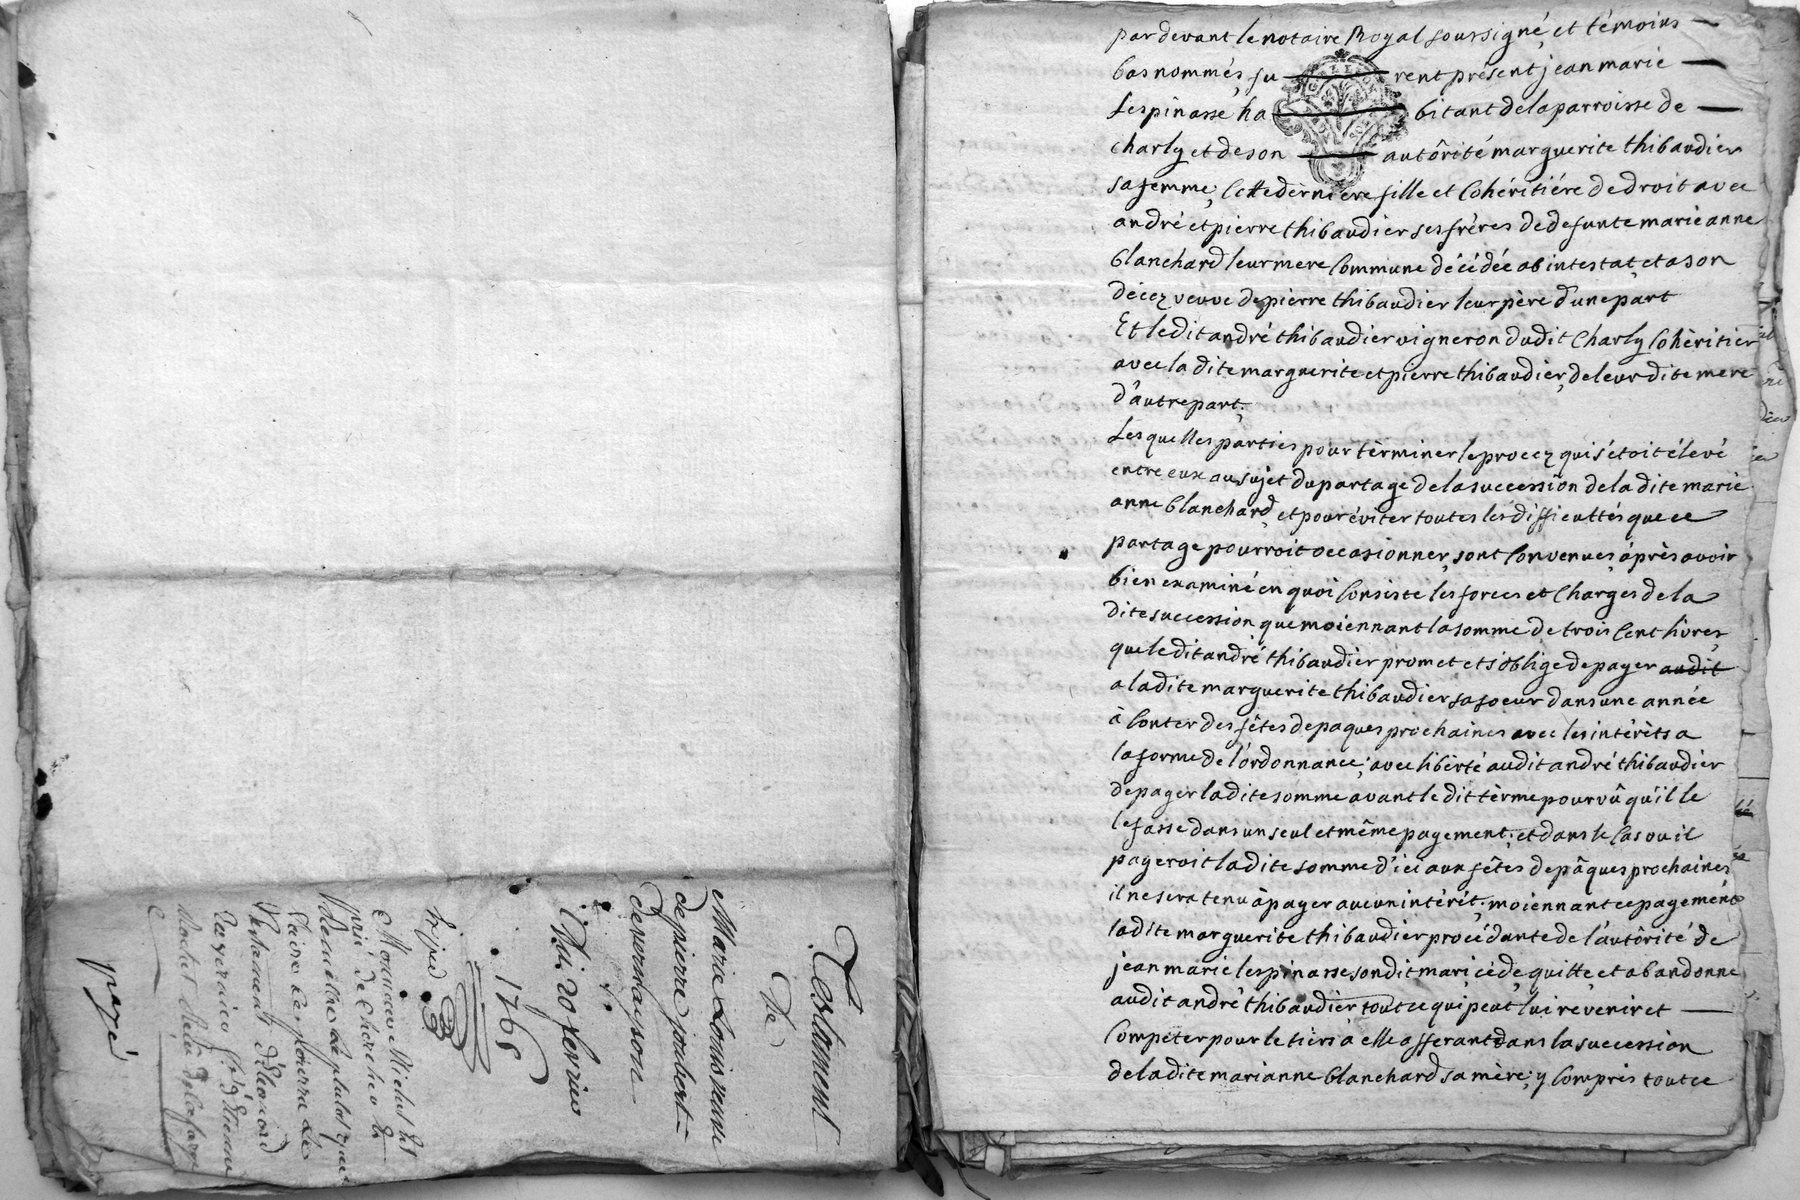 Testament
De
Marie Louis veuve
de pierre joubert
de vernaison
Du 20 fevrier
1765
Monsieur
est prié de chercher le
testament d'Eleonord
payé
pardevant le notaire Royal soussigné, et témoins
bas nommés, fu rent présent jean marie
Lespinasse ha bitant de la parroisse de
charly et de son autôrité marguerite thibaudier
sa femme, Cette dèrniére fille et Cohéritiére de droit avec
andré et pierre thibaudier ses fréres de defunte marie anne
blanchard leur mere Commune décédée ab intestat, et a son
décez veuve de pierre thibaudier leur père d'une part
Et ledit andré thibaudier vigneron dudit Charly Cohèritier
avec la dite marguerite et pierre thibaudier, de leur dite mere
d'autre part;
Lesquelles parties pour tèrminer le procez qui s'étoit élevé
entre eux au sujet du partage de la succession de la dite marie
anne blanchard, et pour éviter toutes les difficultés que ce
partage pourroit occasionner, sont Convenues, àprès avoir
bien examiné en quoi Consiste les forces et Charges de la
dite succession que moiennant la somme de trois Cent livres
que ledit andré thibaudier promet et s'oblige de payer audit
a la dite marguerite thibaudier sa soeur dans une année
à Conter des fêtes de paques prochaines avec les intérêts a
la forme de l'ordonnance; avec libèrté audit andré thibaudier
de payer la dite somme avant le dit tèrme pourvû qu'il le
le fasse dans un seul et même payement; et dans le Cas ou il
payeroit la dite somme d'ici aux fêtes de pâques prochaines
il ne sera tenu à payer aucun intérêt; moiennant ce payement
la dite marguerite thibaudier procédante de l'autôrité de
jean marie lespinasse son dit mari, céde, quitte, et abandonne
audit andré thibaudier tout ce qui peut lui revenir et
Compéter pour le tiers à elle afferant dans la succession
de la dite marianne blanchard sa mère; y Compris tout ce